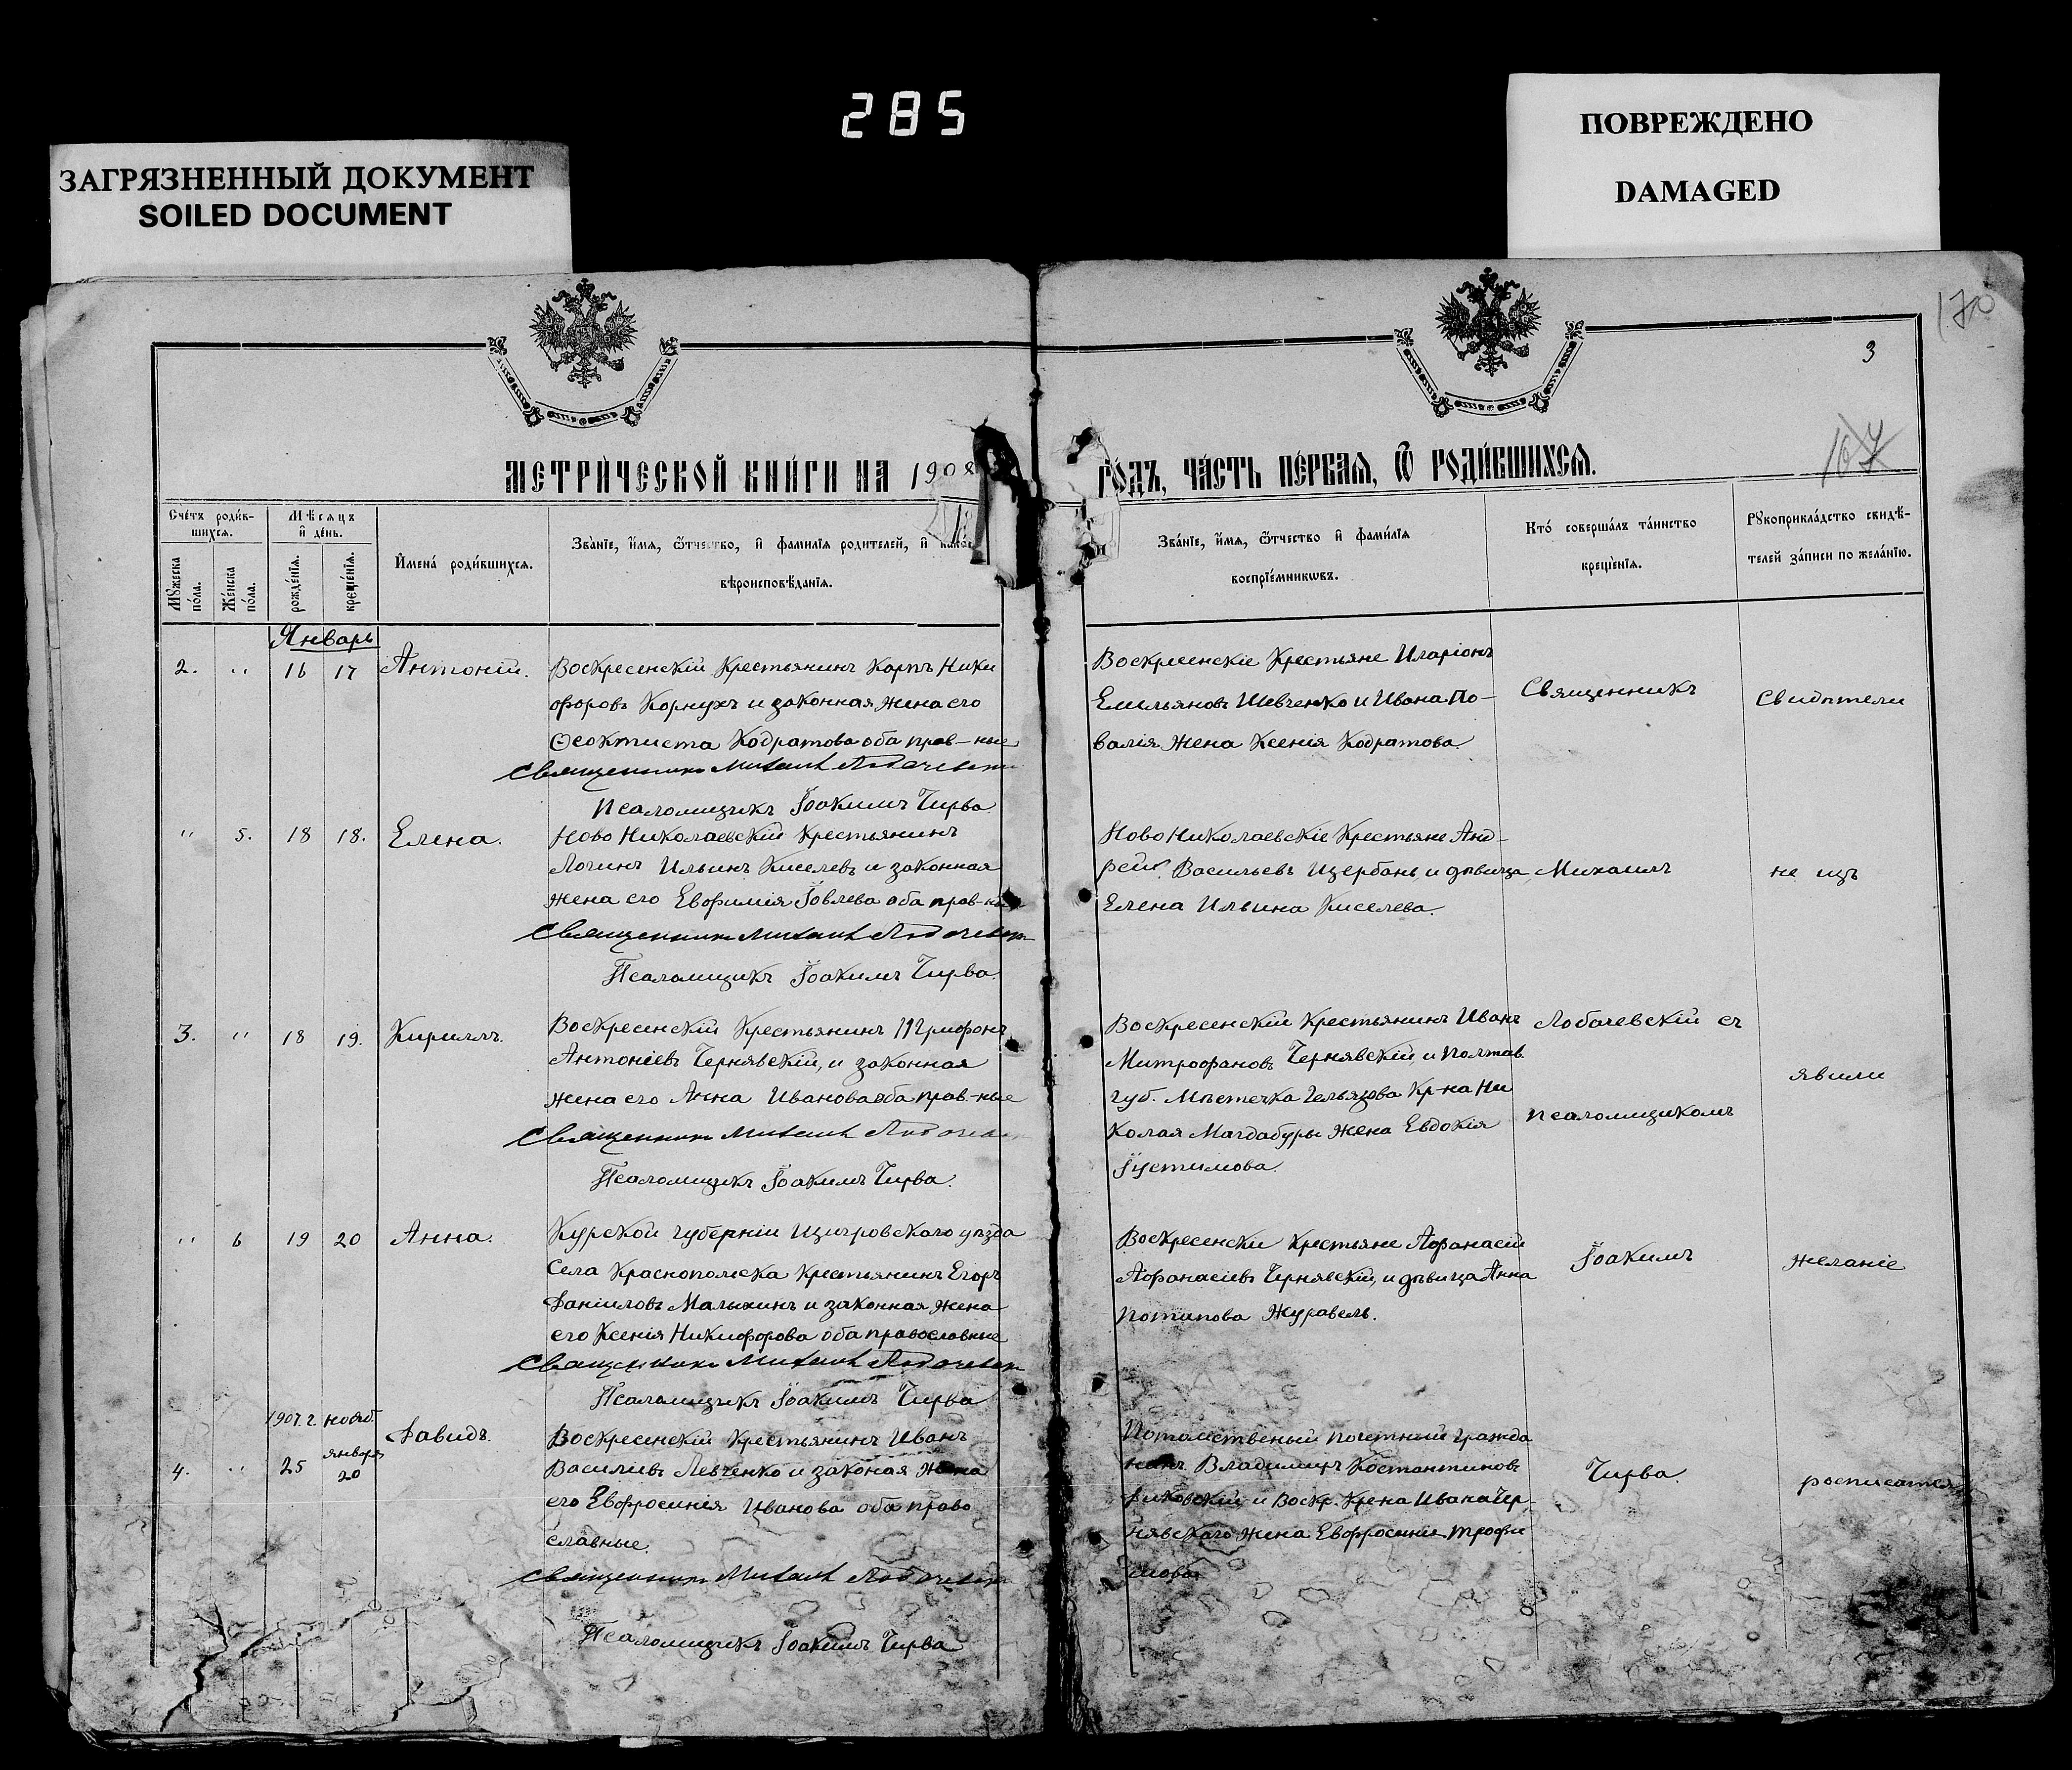 285
ЗАГРЯЗНЕННЫЙ ДОКУМЕНТ
SOILED DOCUMENT
ПОВРЕЖДЕНО
DAMAGED
170
3
167
МЕТРИЧЕСКОЙ КНИГИ НА 1908 ГОДЪ, ЧАСТЬ ПЕРВАЯ, Ѿ РОДИВШИХСЯ.
Счетъ родив-
шихся.
Мѣсяцъ
и день.
Мужеска
пола.
Женска
пола.
рожденія.
крещенія.
Имена родившихся.
Званіе, имя, ѿтчество, и фамилія родителей, и
вѣроисповѣданія.
Званіе, имя, ѿтчество и фамилія
воспріемниковъ.
Кто совершалъ таинство
крещенія.
Рукоприкладство свидѣ-
телей записи по желанію.
Январь
2. " 16 17 Антоній.
Воскресенскій Крестьянинъ Карпъ Ники
форовъ Корнухъ и законная жена его
Ѳеоктиста Кодратова оба прав-ные
Священникъ Михаилъ Лобачевскій
Псаломщикъ Іоакимъ Чирва
Воскресенскіе Крестьяне Иларіонъ
Емильяновъ Шевченко и Ивана По-
валія жена Ксенія Кодратова.
Священникъ
Свидѣтели
" 5. 18 18. Елена.
Ново Николаевскій Крестьянинъ
Логинъ Ильинъ Киселевъ и законная
жена его Евфимія Іовлева оба прав-ные
Священникъ Михаилъ Лобачевскій
Псаломщикъ Іоакимъ Чирва.
Ново Николаевскіе Крестьяне Анд-
рей Васильевъ Щербань и дѣвица
Елена Ильина Киселева.
Михаилъ
не изъ
3. " 18 19. Кириллъ.
Воскресенскій Крестьянинъ Трифонъ
Антоніевъ Чернявскій, и законная
жена его Анна Иванова оба прав-ные
Священникъ Михаилъ Лобачевскій
Псаломщикъ Іоакимъ Чирва.
Воскресенскій Крестьянинъ Иванъ
Митрофановъ Чернявскій, и Полтав.
губ. Мѣстечка Гельязова Кр-на Ни
колая Магдабуры жена Евдокія
Іустимова.
Лобачевскій съ
псаломщикомъ
явили
" 6 19 20 Анна.
Курской губерніи Щигровскаго уѣзда
Села Краснополска Крестьянинъ Егоръ
Даніиловъ Малыхинъ и законная жена
его Ксенія Никифорова оба православные
Священникъ Михаилъ Лобачевскій
Псаломщикъ Іоакимъ Чирва
Воскресенскіе Крестьяне Афанасій
Афанасіевъ Чернявскій, и дѣвица Анна
Потапова Журавель.
Іоакимъ
желаніе
1907 г. нояб.
января
4. " 25 20 Давидъ.
Воскресенскій Крестьянинъ Иванъ
Василіевъ Левченко и законая жена
его Евфросинія Иванова оба право
славные.
Священникъ Михаилъ Лобачевскій
Псаломщикъ Іоакимъ Чирва
Потомственый почетный гражда
нинъ Владимиръ Костантиновъ
и Воскр. Крена Ивана Чер-
нявскаго жена Евфросинія Трофи
мова
Чирва.
росписатся